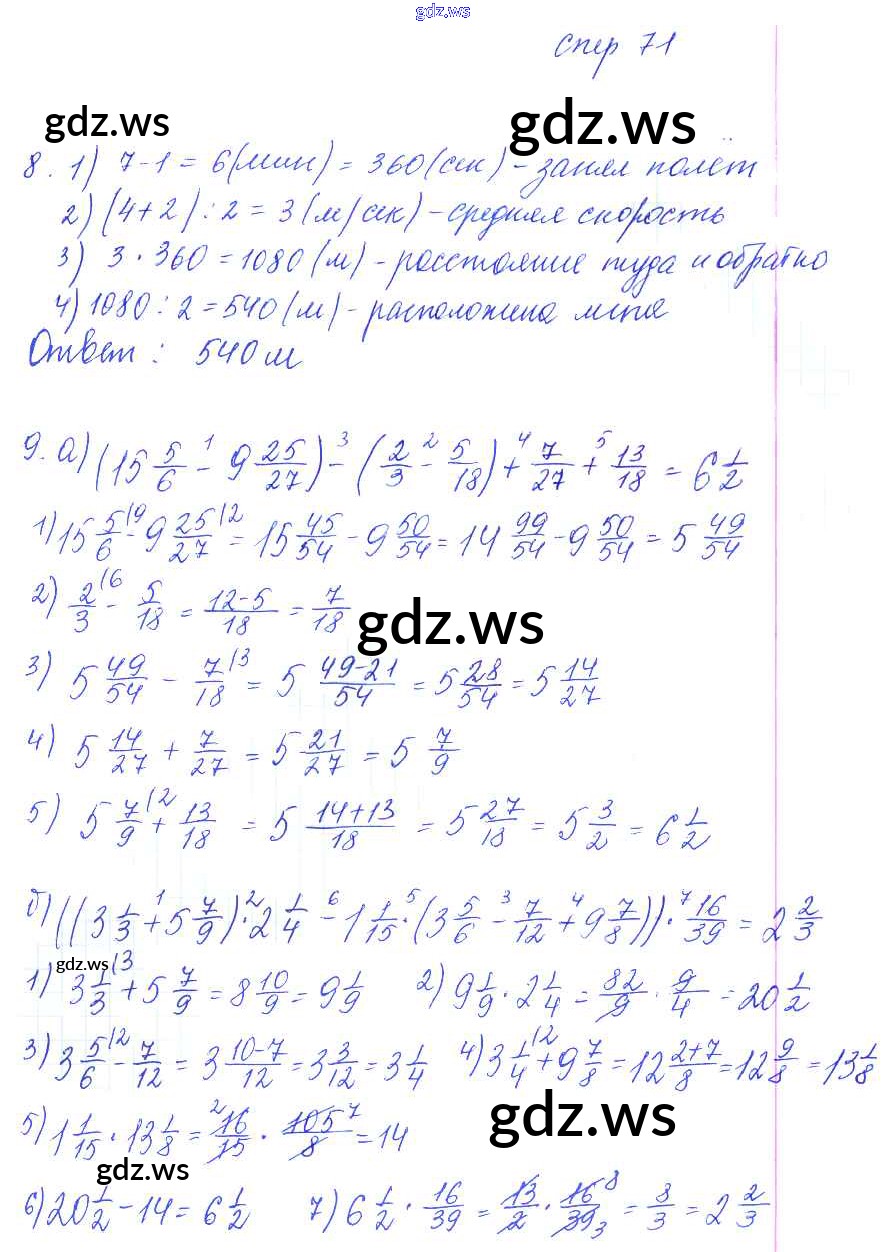 gdz.ws
стр 71
gdz.ws gdz.ws
8. 1) 7-1 = 6(мин) = 360(сек) - занял полёт
2) (4+2) : 2 = 3 (м/сек) - средняя скорость
3) 3 · 360 = 1080 (м) - расстояние туда и обратно
4) 1080 : 2 = 540 (м) - расположена мель
Ответ : 540 м
9. а) (15 5/6 - 9 25/27) - (2/3 - 5/18) + 7/27 + 13/18 = 6 1/2
1) 15 5/6 - 9 25/27 = 15 45/54 - 9 50/54 = 14 99/54 - 9 50/54 = 5 49/54
2) 2/3 - 5/18 = 12-5/18 = 7/18
gdz.ws
3) 5 49/54 - 7/18 = 5 49-21/54 = 5 28/54 = 5 14/27
4) 5 14/27 + 7/27 = 5 21/27 = 5 7/9
5) 5 7/9 + 13/18 = 5 14+13/18 = 5 27/18 = 5 3/2 = 6 1/2
б) ((3 1/3 + 5 7/9) · 2 1/4 - 1 1/15 · (3 5/6 - 7/12 + 9 7/8)) · 16/39 = 2 2/3
gdz.ws
1) 3 1/3 + 5 7/9 = 8 10/9 = 9 1/9 2) 9 1/9 · 2 1/4 = 82/9 · 9/4 = 20 1/2
3) 3 5/6 - 7/12 = 3 10-7/12 = 3 3/12 = 3 1/4 4) 3 1/4 + 9 7/8 = 12 2+7/8 = 12 9/8 = 13 1/8
5) 1 1/15 · 13 1/8 = 16/15 · 105/8 = 14
gdz.ws
gdz.ws
6) 20 1/2 - 14 = 6 1/2 7) 6 1/2 · 16/39 = 13/2 · 16/39 = 8/3 = 2 2/3